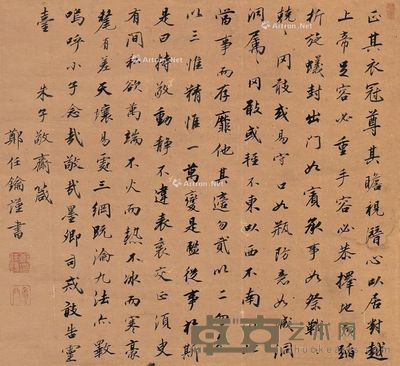 正其衣冠尊其瞻視潛心以居對越
上帝足容必重手容必恭擇地而蹈
折旋蟻封出門如賓承事如祭戰々
兢々罔敢或易守口如瓶防意如城洞
洞屬々罔敢或輕不東以西不南以北
當事而存靡他其適勿貳以二勿參
以三惟精惟一萬變是監從事於斯
是曰持敬動靜不違表裏交正須臾
有間私欲萬端不火而熱不冰而寒毫
釐有差天壤易處三綱既淪九法亦斁
嗚呼小子念哉敬哉墨卿司戒敢告靈
臺 朱子敬齋箴
鄭任鑰謹書
卓克艺术网